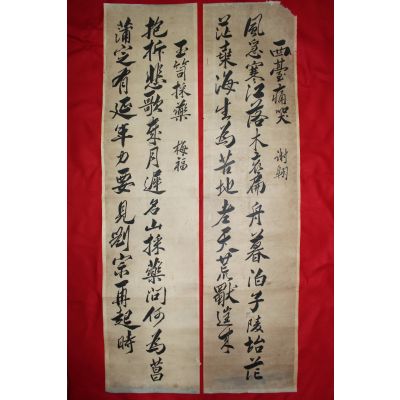 西臺痛哭 謝翶
風急寒江落木哀扁舟暮泊子陵坮茫
茫桑海生為苦地老天荒來
玉笥採藥 梅福
抱悲歌乘月遲名山採藥問何為菖
蒲定有延年力要見劉宗再起時